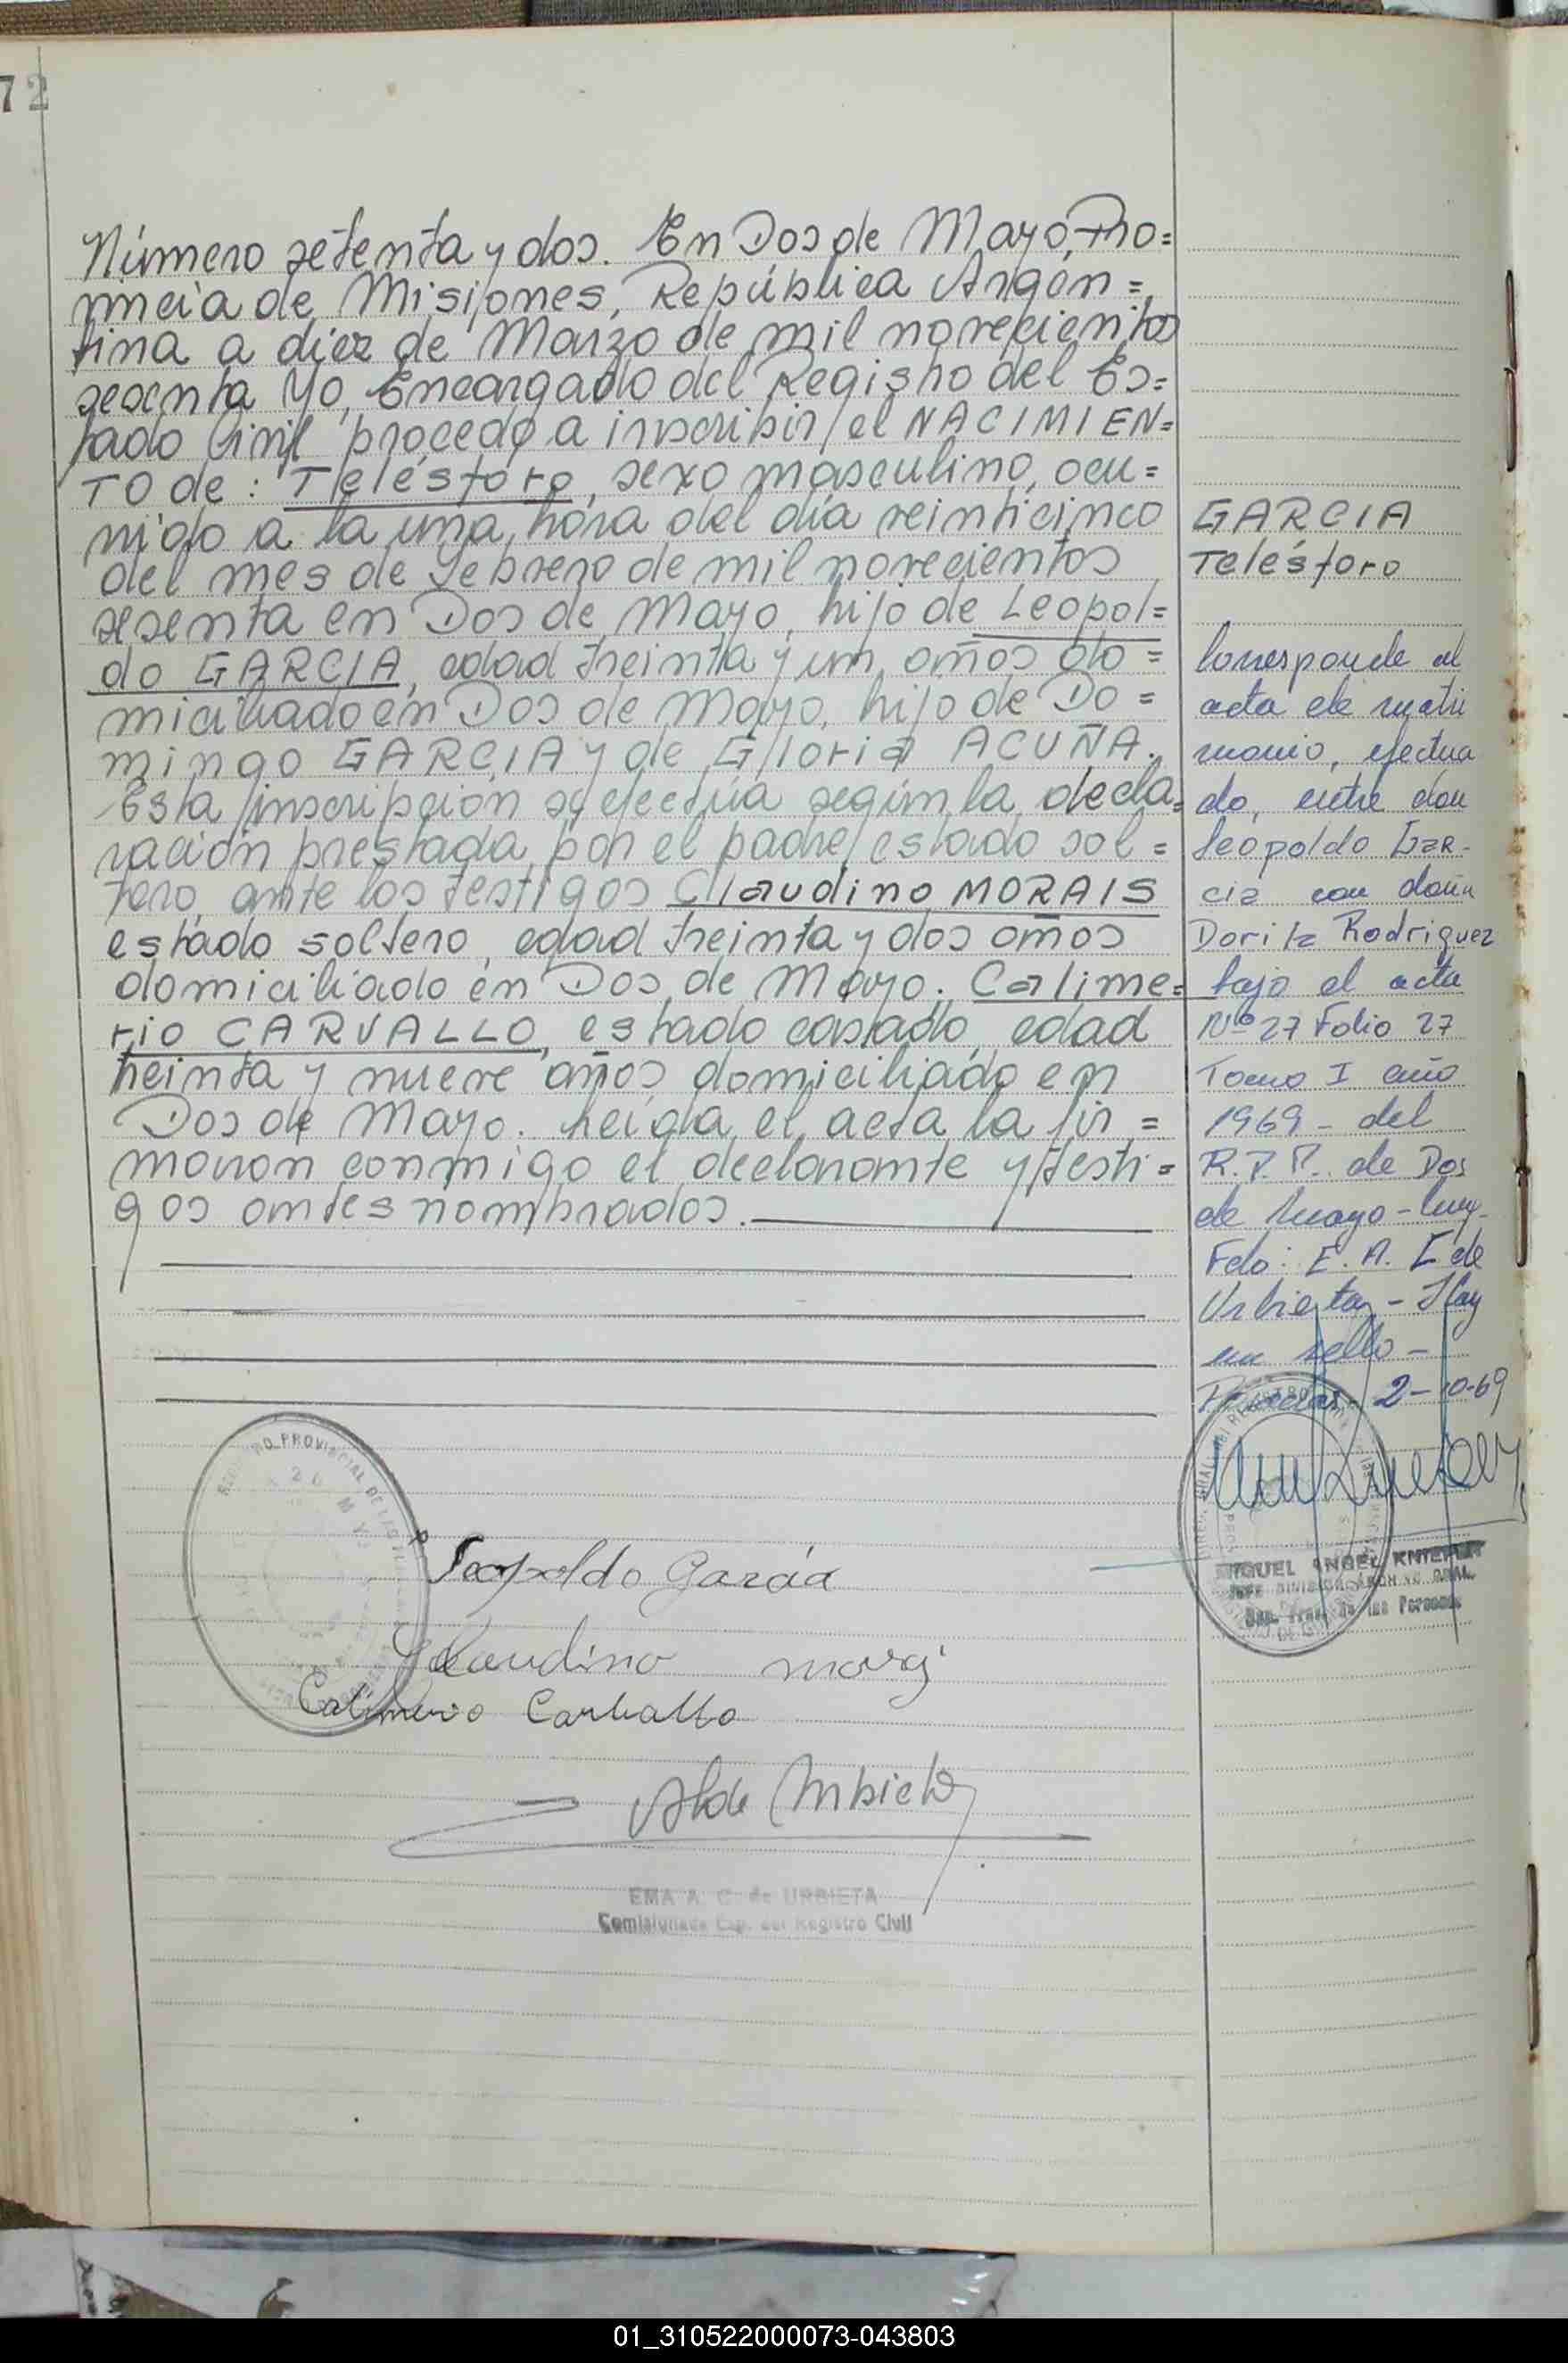 72
Número setenta y dos. En Dos de Mayo, Pro=
vincia de Misiones, República Argen=
tina a diez de Marzo de mil novecientos
sesenta Yo, Encargado del Registro del Es=
tado Civil procedo a inscribir el NACIMIEN=
TO de: Telésforo, sexo masculino, ocu=
rrido a la una hora del día veinticinco
del mes de Febrero de mil novecientos
sesenta en Dos de Mayo, hijo de Leopol=
do GARCIA, edad treinta y un años do=
miciliado en Dos de Mayo, hijo de Do=
mingo GARCIA y de Gloria ACUÑA.
Esta inscripción se efectúa según la decla=
ración prestada por el padre, estado sol=
tero, ante los testigos Claudino MORAIS
estado soltero, edad treinta y dos años
domiciliado en Dos de Mayo. Calime=
rio CARVALLO, estado casado, edad
treinta y nueve años, domiciliado en
Dos de Mayo. Leída el acta la fir=
maron conmigo el declarante y testi=
gos antes nombrados.
Leopoldo García
Claudino
Calimerio Carballo
A C de Urbieta
EMA A. C. de URBIETA
Comisionada Esp. del Registro Civil
GARCIA
Telésforo
Corresponde al
acta de matri
monio, efectua
do, entre don
Leopoldo Gar-
cia con doña
Dorila Rodriguez
bajo el acta
Nº 27 Folio 27
Tomo I año
1969 - del
R.P.P. de Dos
de Mayo -
Fdo: E. A. de
Urbieta - Hay
un sello -
Posadas, 2-10-69
MIGUEL ANGEL KNIEPLER
JEFE DIVISION ARCHIVO GRAL.
Reg. Prov. de las Personas
REGISTRO PROVINCIAL DE LAS
01_310522000073-043803